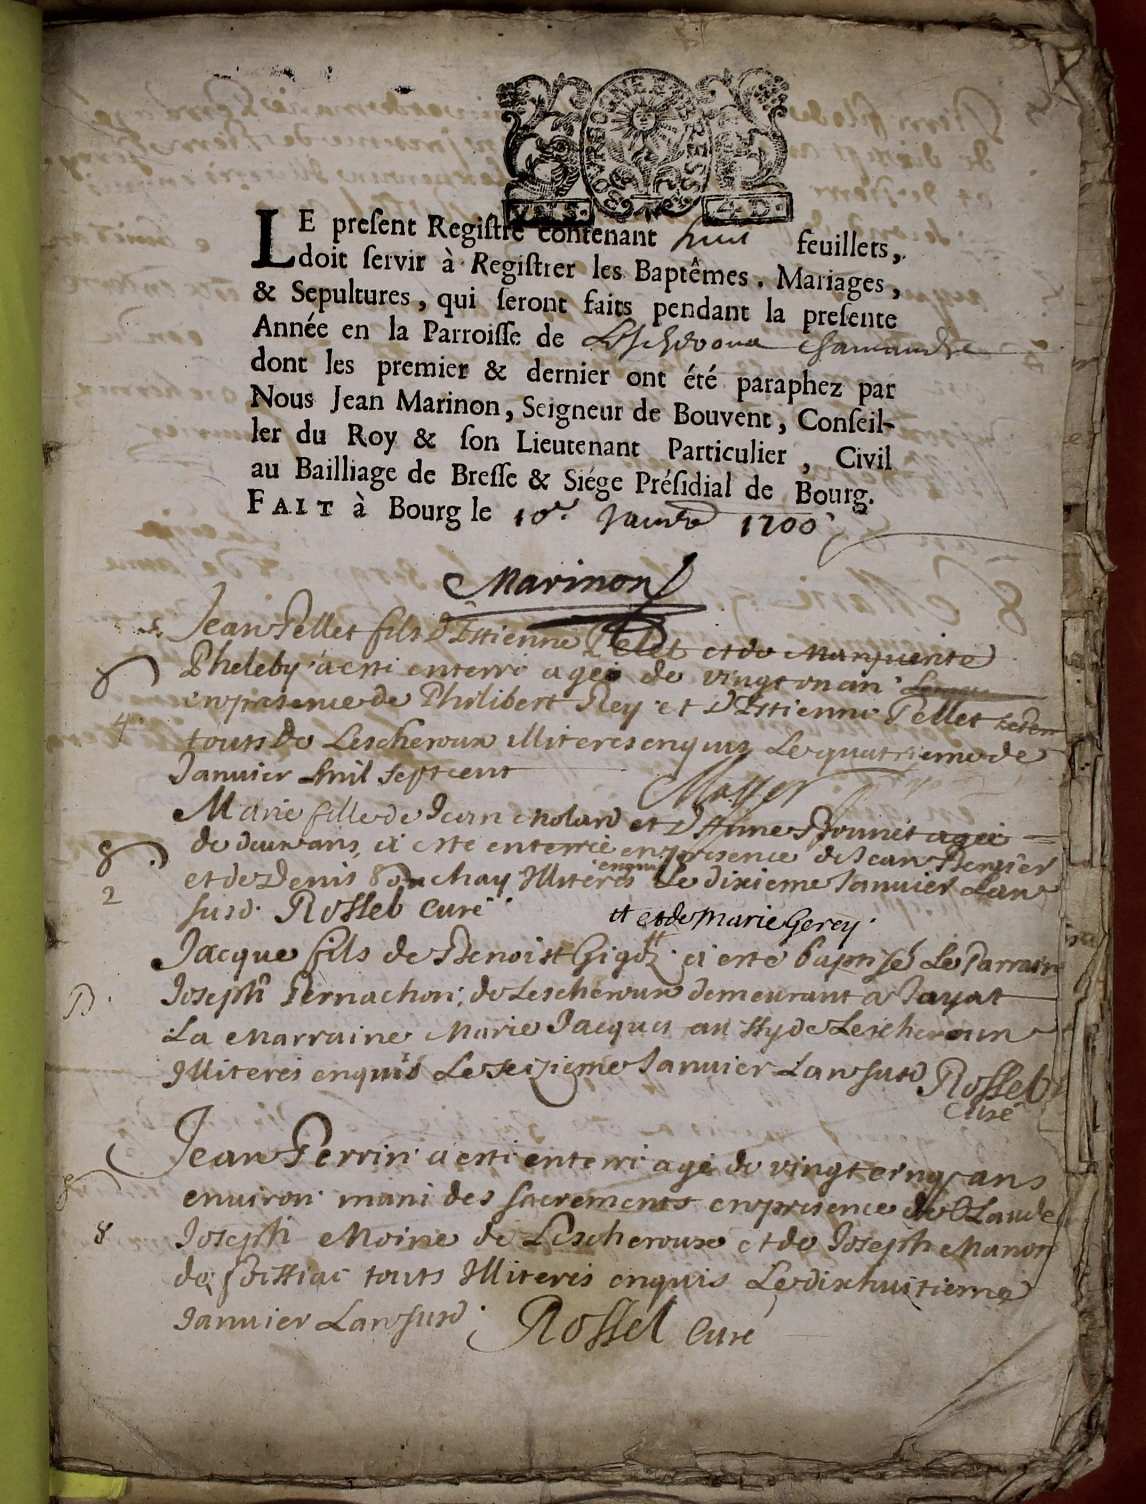 LE present Registre contenant huit feuillets,
doit servir à Registrer les Baptêmes, Mariages,
& Sepultures, qui seront faits pendant la presente
Année en la Parroisse de
dont les premier & dernier ont été paraphez par
Nous Jean Marinon, Seigneur de Bouvent, Conseil-
ler du Roy & son Lieutenant Particulier, Civil
au Bailliage de Bresse & Siége Présidial de Bourg.
FAIT à Bourg le 10e. Janvier 1700
Marinon
Jean Pellet fils d'Estienne Pelet et de Marguerite
Pheleby a esti enterré agé de vingt un an
en presence de Philibert Rey et d'Estienne Pellet
touts de Lescheroux illiteres enquis Le quatrieme de
Janvier mil sept cent
4
Marie fille de Jean Molard et agée
de deux ans, a este enterrée en presence de Jean Bernier
et de Denis Illiteres enquis Le dixieme Janvier Lan
2
susd. Rossel Curé
tt et de Marie Gerey.
Jacque fils de Benoist a esté baptisé Le Parrain
Joseph Pernachon, de Lescheroux demeurant a Jayat
La Marraine Marie Jacquet de Lescheroux
Illiteres enquis Le seizieme Janvier Lan susd Rossel
Curé
Jean Perrin a esti enterré agé de vingt cinq ans
environ muni des sacrements en presence de Claude
8
Joseph Moine de Lescheroux et de Joseph Manon
de Foissiac touts Illiteres enquis Le dixhuitieme
Janvier Lan susd. Rossel Curé